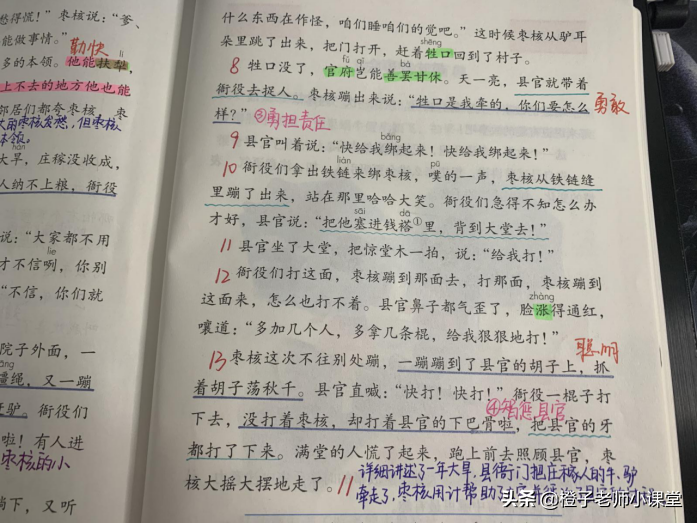 愁得慌！”枣核说：“爹、
能做事情。”
勤快
li
多的本领。他能扶犁，
上不去的地方他也能
邻居们都夸枣核，枣
hàn
大旱，庄稼没收成，
人纳不上粮，衙役
说：“大家都不用
liē
才不信咧，你别
“不信，你们就
院子外面，一
缰绳，又一蹦
赶驴。衙役们
啦！有人进
枣核的小
躺下，又听
什么东西在作怪，咱们睡咱们的觉吧。”这时候枣核从驴耳
shēng
朵里跳了出来，把门打开，赶着牲口回到了村子。
fǔ qǐ bà
8 牲口没了，官府岂能善罢甘休。天一亮，县官就带着
衙役去捉人。枣核蹦出来说：“牲口是我牵的，你们要怎么
勇敢
样？”③勇担责任
bǎng
9 县官叫着说：“快给我绑起来！快给我绑起来！”
liàn pū
10 衙役们拿出铁链来绑枣核，噗的一声，枣核从铁链缝
里蹦了出来，站在那里哈哈大笑。衙役们急得不知怎么办
sāi dā
才好，县官说：“把他塞进钱褡①里，背到大堂去！”
11 县官坐了大堂，把惊堂木一拍，说：“给我打！”
12 衙役们打这面，枣核蹦到那面去，打那面，枣核蹦到
这面来，怎么也打不着。县官鼻子都气歪了，脸涨得通红，
zhàng
嚷道：“多加几个人，多拿几条棍，给我狠狠地打！”
聪明
13 枣核这次不往别处蹦，一蹦蹦到了县官的胡子上，抓
着胡子荡秋千。县官直喊：“快打！快打！”衙役一棍子打
④智惩县官
下去，没打着枣核，却打着县官的下巴骨啦，把县官的牙
都打了下来。满堂的人慌了起来，跑上前去照顾县官，枣
核大摇大摆地走了。11
详细讲述了一年大旱，县衙门把庄稼人的牛、驴
牵走了，枣核用计帮助了
头条 @橙子老师小课堂